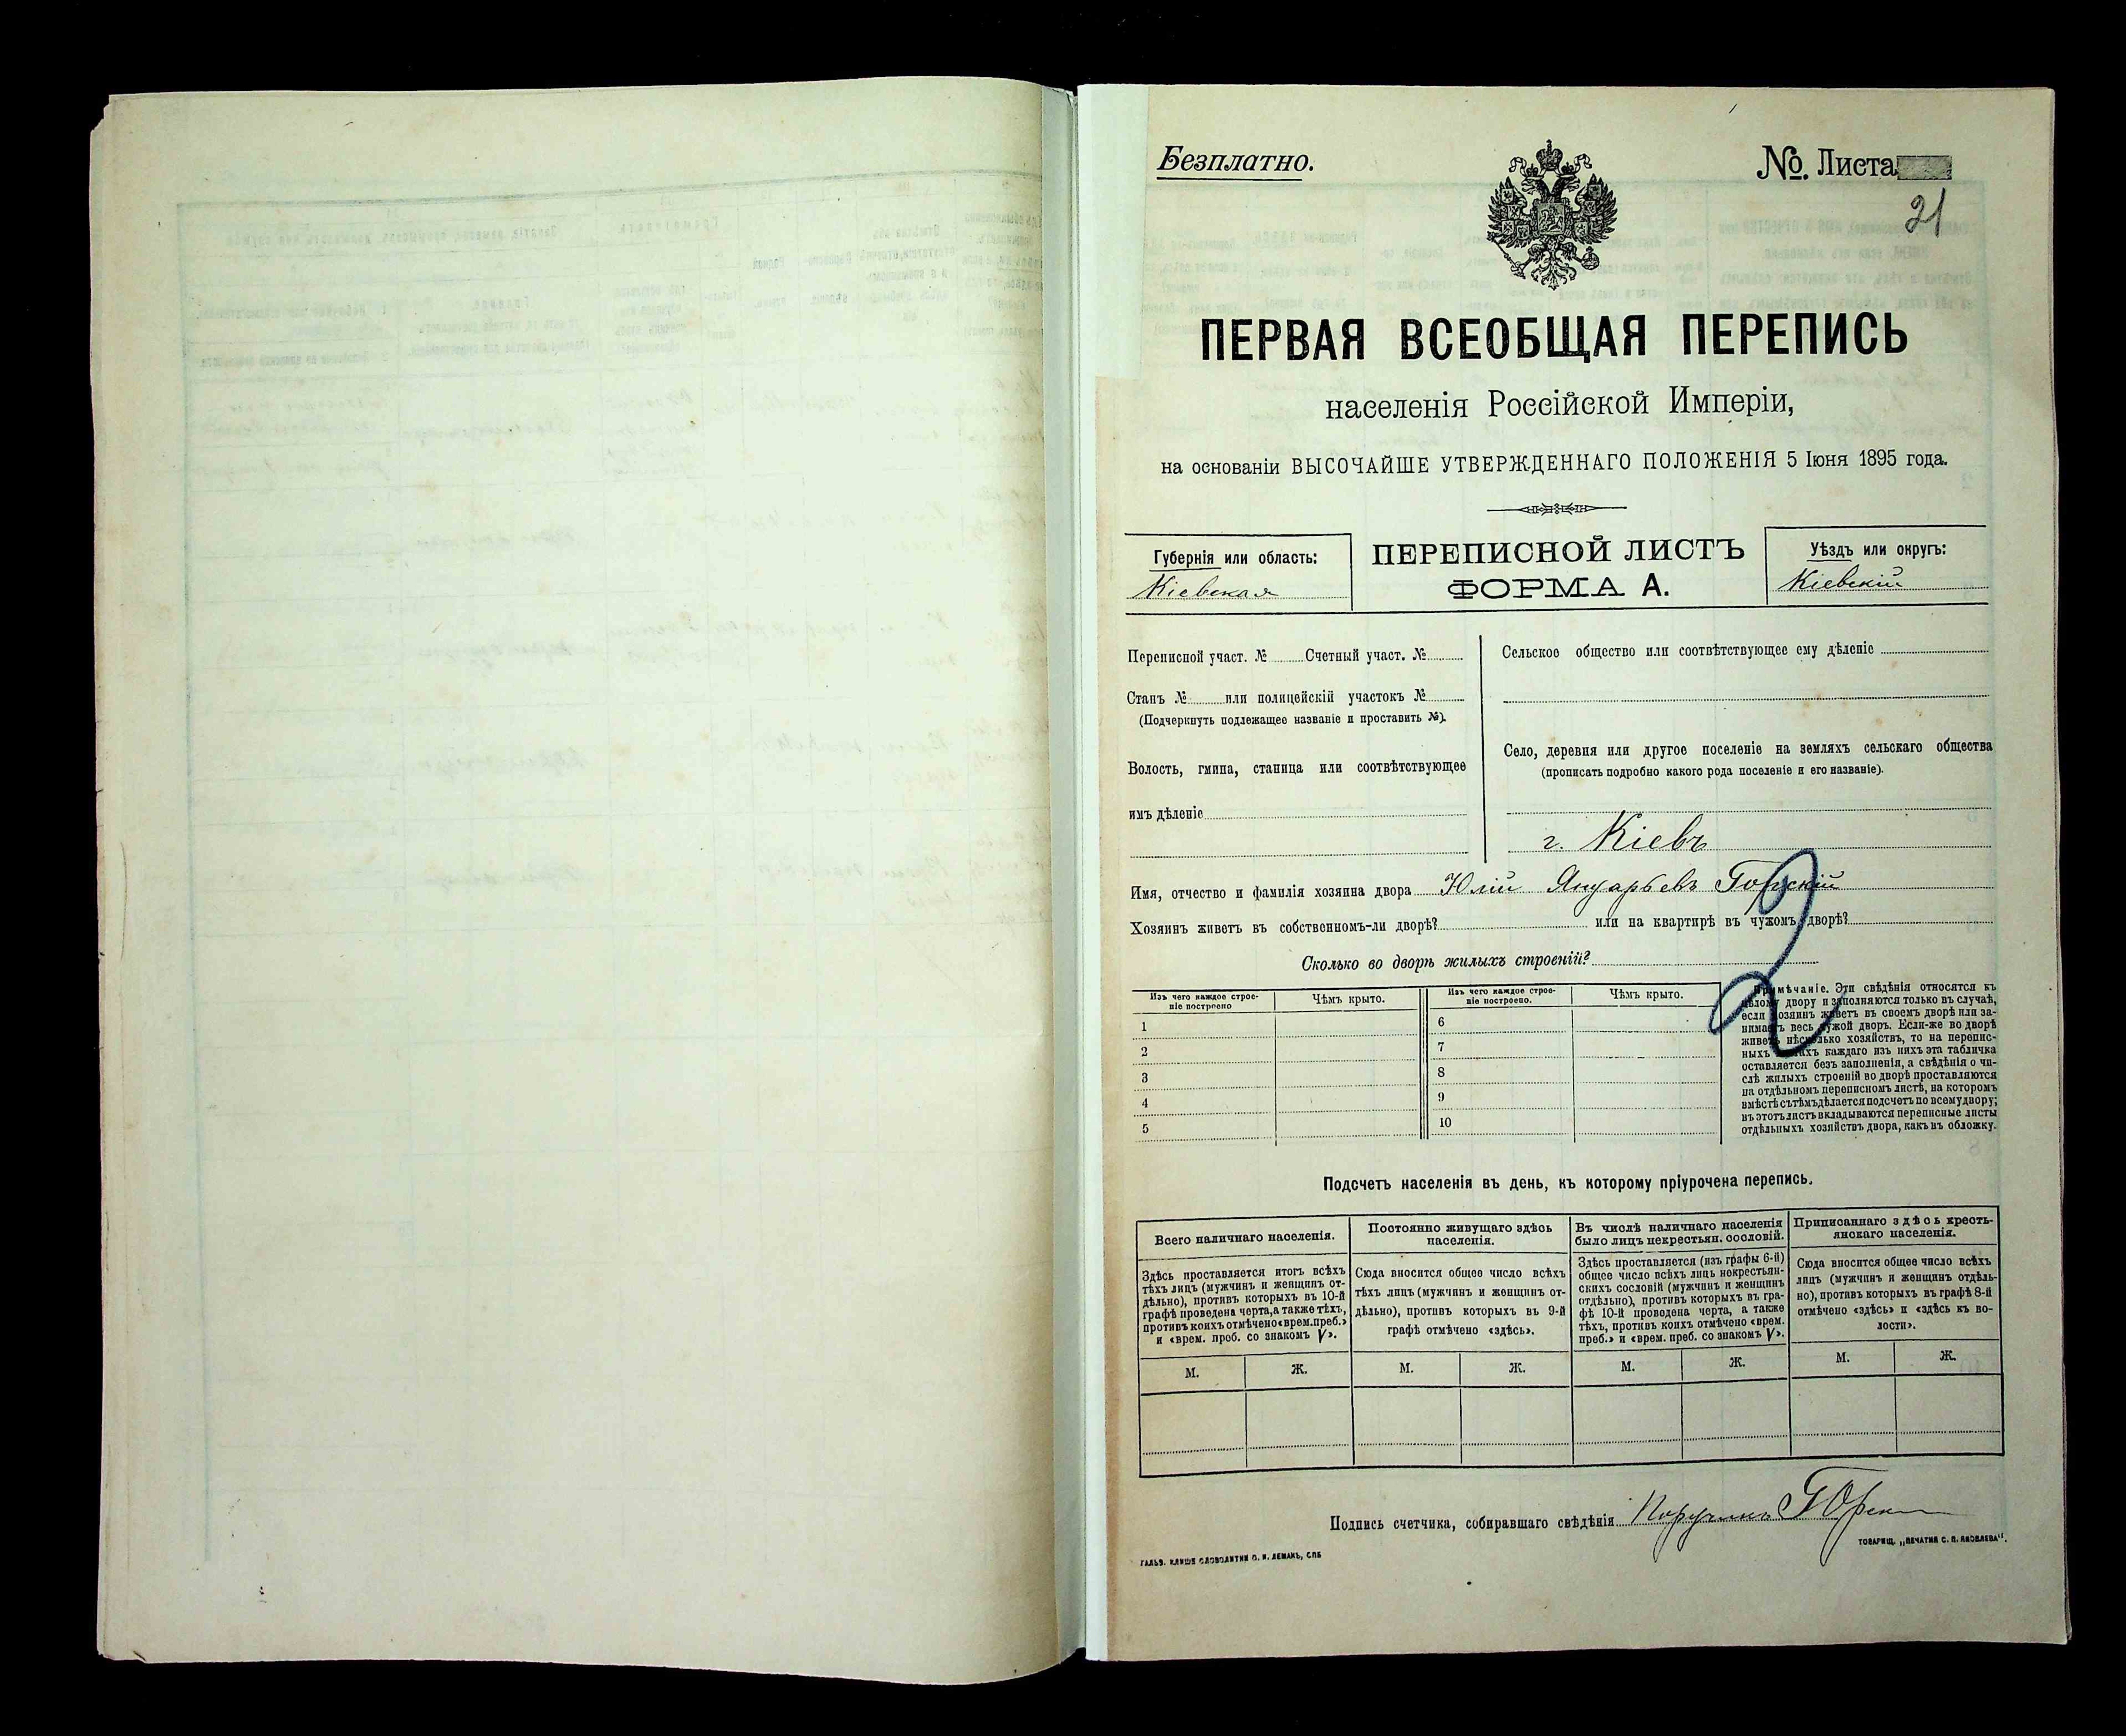 Безплатно.
№. Листа
21
ПЕРВАЯ ВСЕОБЩАЯ ПЕРЕПИСЬ
населенія Россійской Имперіи,
на основаніи ВЫСОЧАЙШЕ УТВЕРЖДЕННАГО ПОЛОЖЕНІЯ 5 Іюня 1895 года.
Губернія или область:
Кіевская
ПЕРЕПИСНОЙ ЛИСТЪ
ФОРМА А.
Уѣздъ или округъ:
Кіевскій
Переписной участ. № Счетный участ. №
Станъ № или полицейскій участокъ №
(Подчеркнуть подлежащее названіе и проставить №).
Волость, гмина, станица или соотвѣтствующее
имъ дѣленіе
Сельское общество или соотвѣтствующее ему дѣленіе
Село, деревня или другое поселеніе на земляхъ сельскаго общества
(прописать подробно какого рода поселеніе и его названіе).
г. Кіевъ
Имя, отчество и фамилія хозяина двора Юлій Януарьевъ Горскій
Хозяинъ живетъ въ собственномъ-ли дворѣ? или на квартирѣ въ чужомъ дворѣ?
Сколько во дворѣ жилыхъ строеній?
Изъ чего каждое строе-
ніе построено
Чѣмъ крыто.
Изъ чего каждое строе-
ніе построено.
Чѣмъ крыто.
1
2
3
4
5
6
7
8
9
10
Примѣчаніе. Эти свѣдѣнія относятся къ
цѣлому двору и заполняются только въ случаѣ,
если хозяинъ живетъ въ своемъ дворѣ или за-
нимаетъ весь чужой дворъ. Если-же во дворѣ
живетъ нѣсколько хозяйствъ, то на перепис-
ныхъ листахъ каждаго изъ нихъ эта табличка
оставляется безъ заполненія, а свѣдѣнія о чи-
слѣ жилыхъ строеній во дворѣ проставляются
на отдѣльномъ переписномъ листѣ, на которомъ
вмѣстѣ съ тѣмъ дѣлается подсчетъ по всему двору;
въ этотъ листъ вкладываются переписные листы
отдѣльныхъ хозяйствъ двора, какъ въ обложку.
Подсчетъ населенія въ день, къ которому пріурочена перепись.
Всего наличнаго населенія.
Здѣсь проставляется итогъ всѣхъ
тѣхъ лицъ (мужчинъ и женщинъ от-
дѣльно), противъ которыхъ въ 10-й
графѣ проведена черта, а также тѣхъ,
противъ коихъ отмѣчено «врем. преб.»
и «врем. преб. со знакомъ V».
Постоянно живущаго здѣсь
населенія.
Сюда вносится общее число всѣхъ
тѣхъ лицъ (мужчинъ и женщинъ от-
дѣльно), противъ которыхъ въ 9-й
графѣ отмѣчено «здѣсь».
Въ числѣ наличнаго населенія
было лицъ некрестьян. сословій.
Здѣсь проставляется (изъ графы 6-й)
общее число всѣхъ лицъ некрестьян-
скихъ сословій (мужчинъ и женщинъ
отдѣльно), противъ которыхъ въ гра-
фѣ 10-й проведена черта, а также
тѣхъ, противъ коихъ отмѣчено «врем.
преб.» и «врем. преб. со знакомъ V».
Приписаннаго здѣсь кресть-
янскаго населенія.
Сюда вносится общее число всѣхъ
лицъ (мужчинъ и женщинъ отдѣль-
но), противъ которыхъ въ графѣ 8-й
отмѣчено «здѣсь» и «здѣсь къ во-
лости».
М. Ж. М. Ж. М. Ж. М. Ж.
Подпись счетчика, собиравшаго свѣдѣнія
ГАЛЬВ. КЛИШЕ СЛОВОЛИТНИ О. И. ЛЕМАНЪ, СПБ
ТОВАРИЩ. „ПЕЧАТНЯ С. П. ЯКОВЛЕВА“.